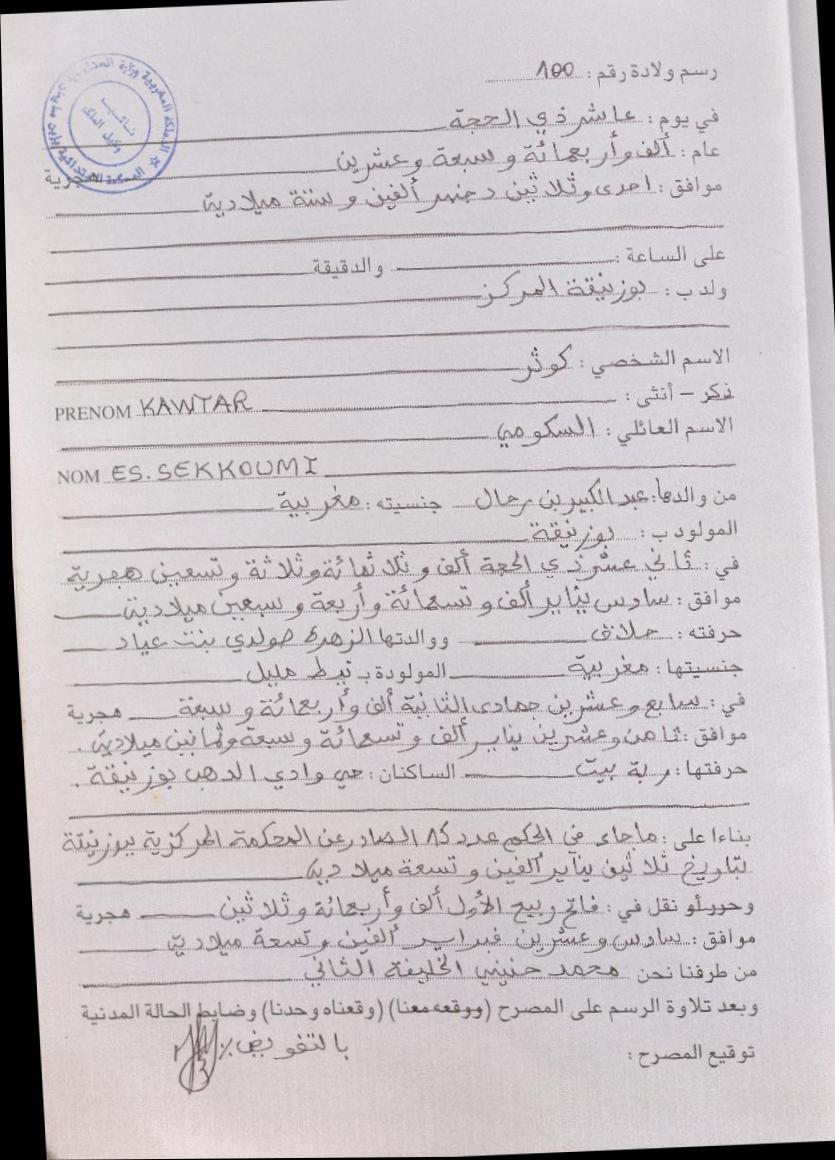 رسم ولادة رقم : 100
في يوم : عاشر ذي الحجة
عام : ألف وأربعمائة وسبعة وعشرين هجرية
موافق : احدى وثلاثين دجنبر ألفين وستة ميلادية
على الساعة : والدقيقة
ولد ب : بوزنيقة المركز
الاسم الشخصي : كوثر
ذكر – أنثى :
PRENOM KAWTAR
الاسم العائلي : السكومي
NOM ES.SEKKOUMI
من والدها : عبد الكبير بن رحال جنسيته : مغربية
المولود ب : بوزنيقة
في : ثاني عشر ذي الحجة ألف وثلاثمائة وثلاثة وتسعين هجرية
موافق : سادس يناير ألف وتسعمائة وأربعة وسبعين ميلادية
حرفته : حلاق ووالدتها الزهرة صولدي بنت عياد
جنسيتها : مغربية المولودة ب تيط مليل
في : سابع وعشرين جمادى الثانية ألف وأربعمائة وسبعة هجرية
موافق : ثامن وعشرين يناير ألف وتسعمائة وسبعة وثمانين ميلادية .
حرفتها : ربة بيت الساكنان : حي وادي الدهب بوزنيقة .
بناءا على : ماجاء في الحكم عدد 18 الصادر عن المحكمة المركزية ببوزنيقة
بتاريخ ثلاثين يناير ألفين وتسعة ميلادية
وحرر/أو نقل في : فاتح ربيع الأول ألف وأربعمائة وثلاثين هجرية
موافق : سادس وعشرين فبراير ألفين وتسعة ميلادية
من طرفنا نحن محمد حنيني الخليفة الثاني
وبعد تلاوة الرسم على المصرح (ووقعه معنا) (وقعناه وحدنا) وضابط الحالة المدنية
توقيع المصرح : بالتفويض
المملكة المغربية وزارة العدل
نائب
وكيل الملك
المحكمة الابتدائية